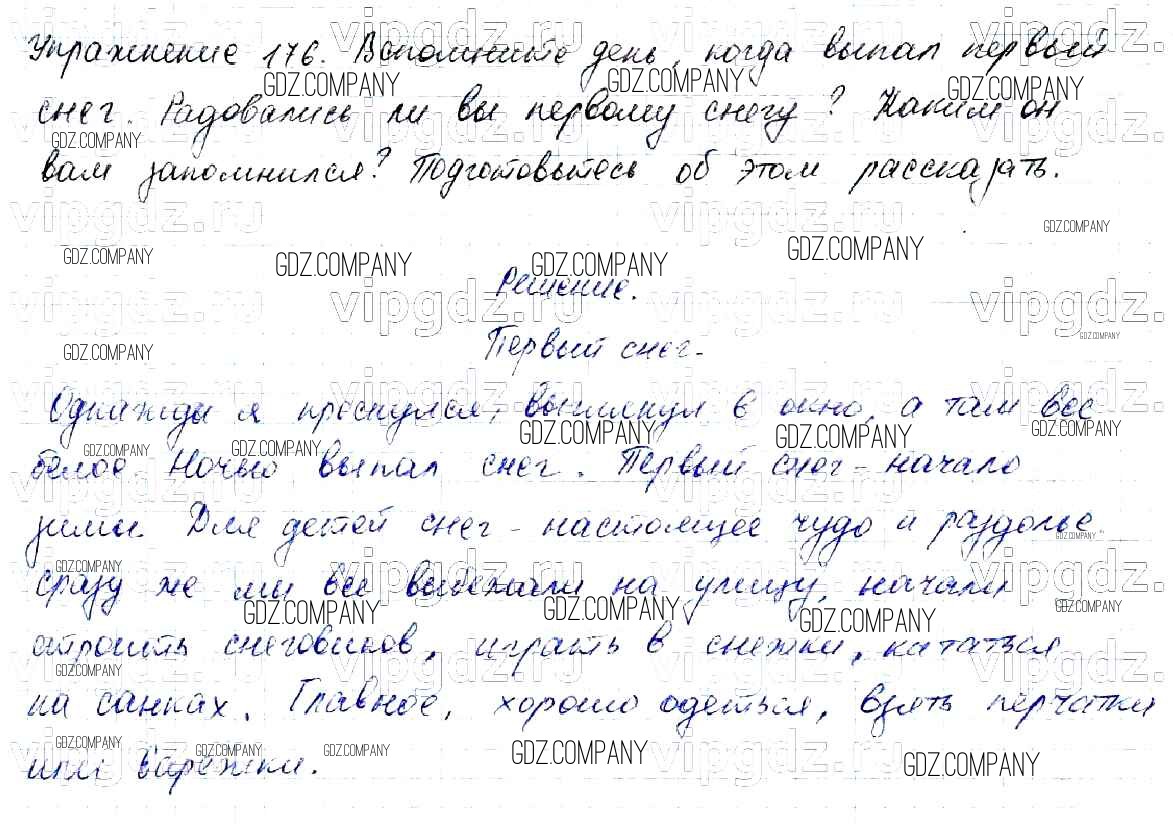 Упражнение 176. Вспомните день, когда выпал первый
снег. Радовались ли вы первому снегу? Каким он
вам запомнился? Подготовьтесь об этом рассказать.
Решение.
Первый снег.
Однажды я проснулся, выглянул в окно, а там все
белое. Ночью выпал снег. Первый снег - начало
зимы. Для детей снег - настоящее чудо и раздолье.
Сразу же мы все выбежали на улицу, начали
строить снеговиков, играть в снежки, кататься
на санках. Главное, хорошо одеться, взять перчатки
или варежки.
vipgdz.ru
GDZ.COMPANY